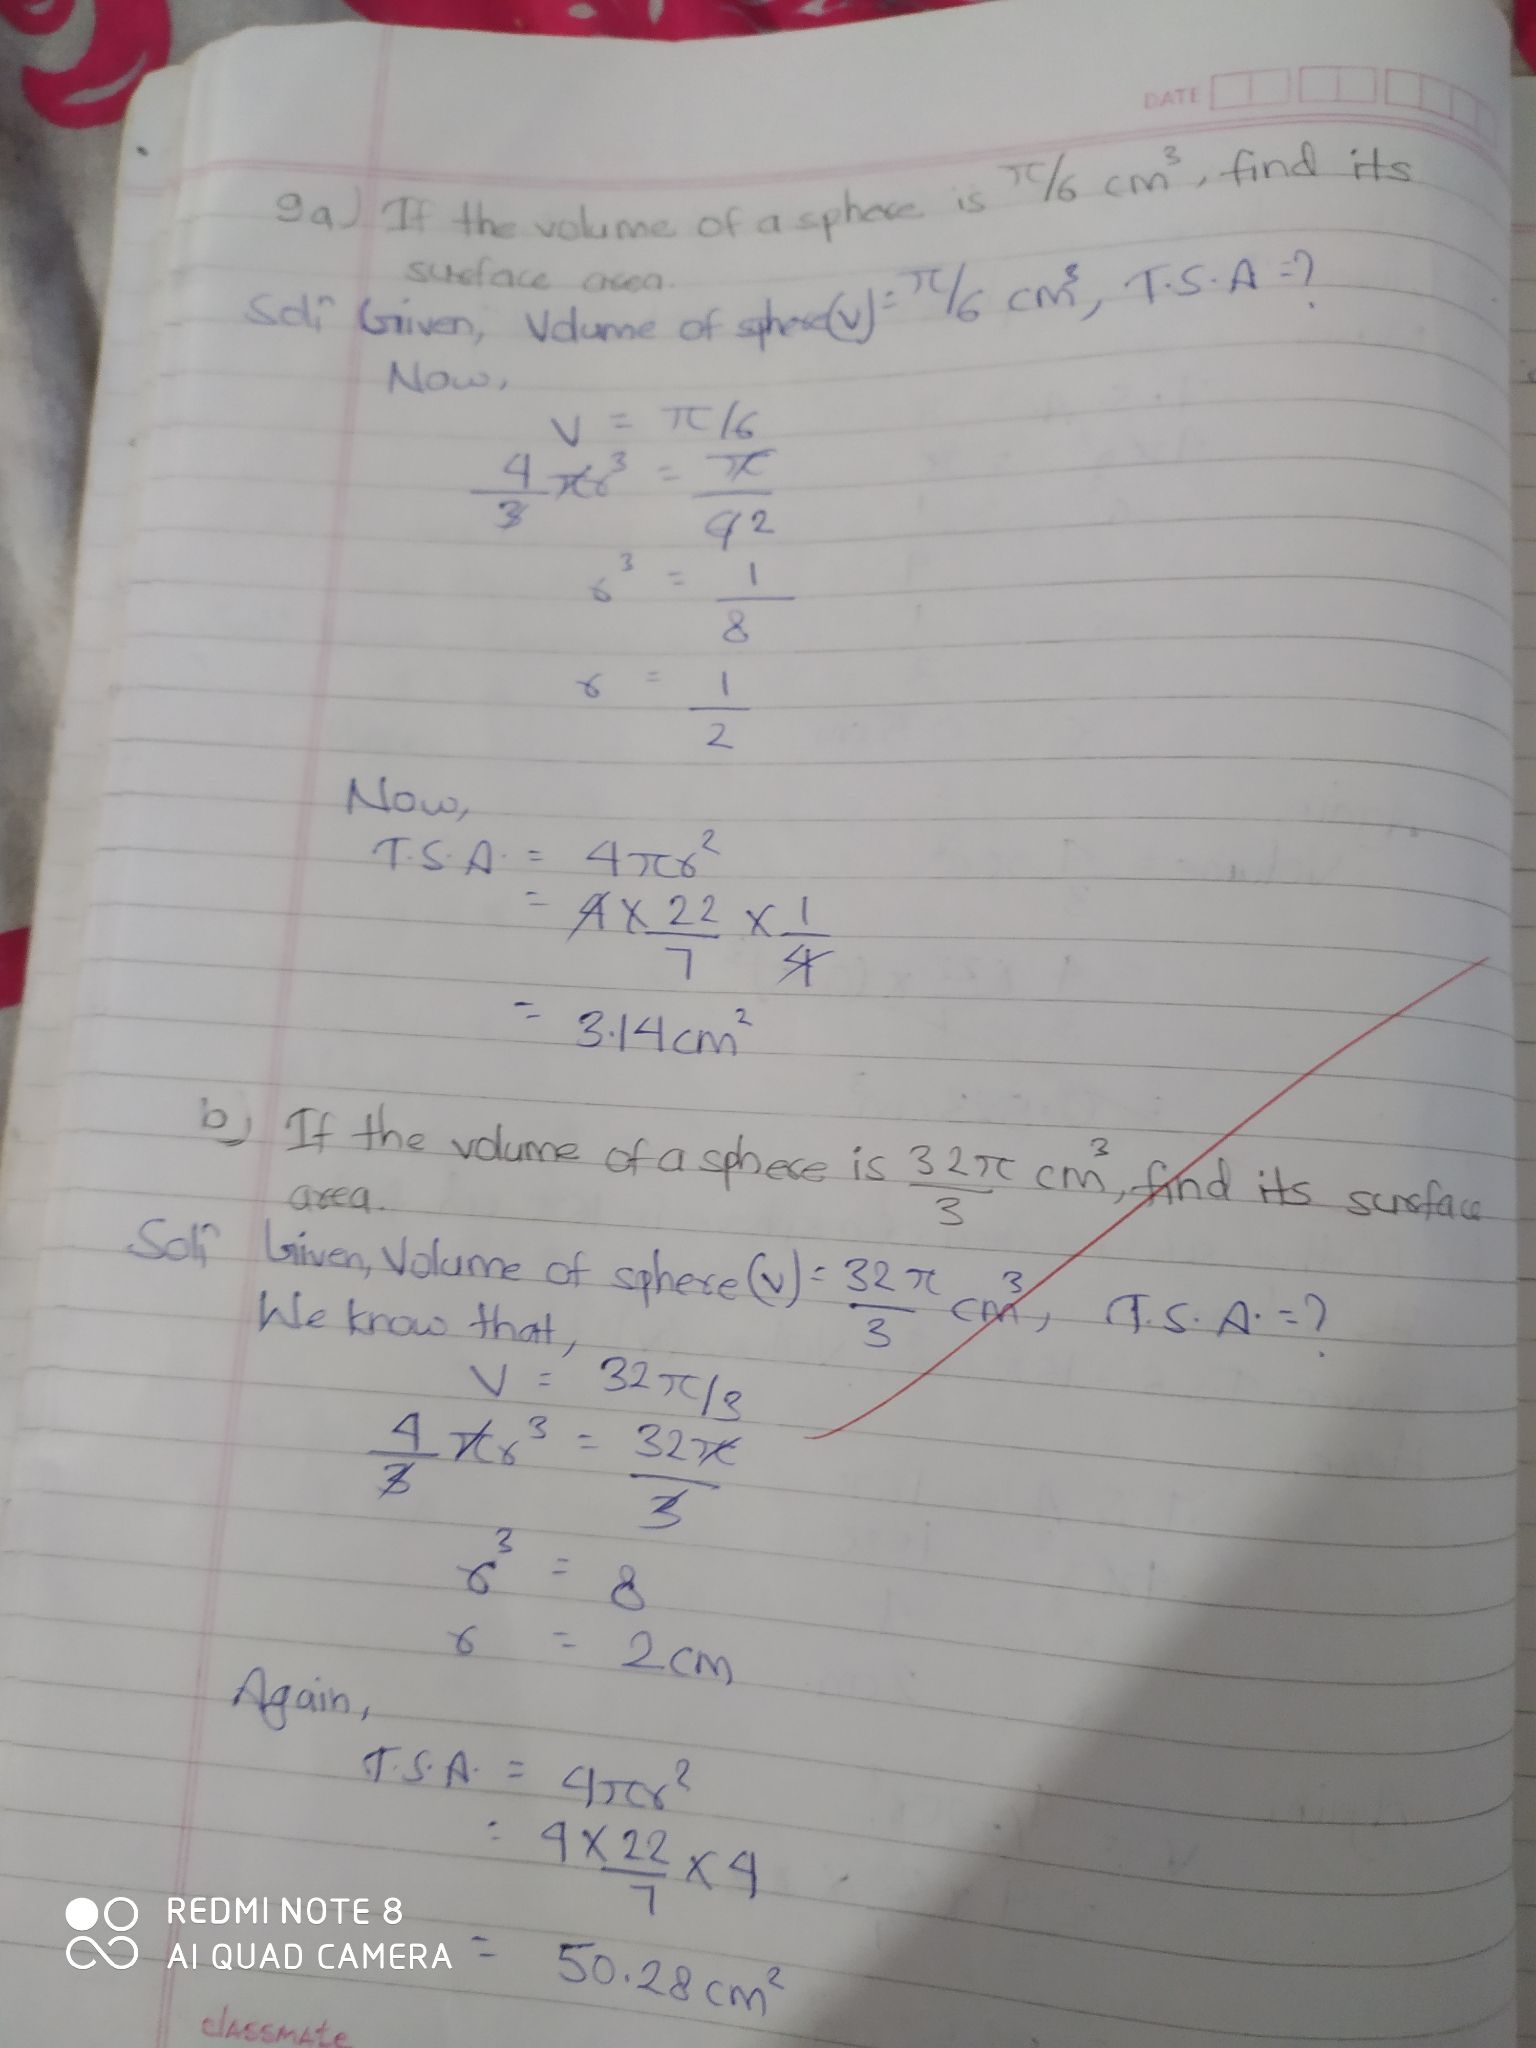 DATE
9a) If the volume of a sphere is π/6 cm³, find its
surface area.
Solⁿ: Given, Volume of sphere(v) = π/6 cm³, T.S.A = ?
Now,
V = π/6
4/3 πr³ = π/6 2
r³ = 1/8
r = 1/2
Now,
T.S.A. = 4πr²
= 4 × 22/7 × 1/4
= 3.14 cm²
b) If the volume of a sphere is 32π/3 cm³, find its surface
area.
Solⁿ: Given, Volume of sphere (v) = 32π/3 cm³, T.S.A. = ?
We know that,
V = 32π/3
4/3 πr³ = 32π/3
r³ = 8
r = 2cm
Again,
T.S.A. = 4πr²
= 4 × 22/7 × 4
= 50.28 cm²
REDMI NOTE 8
AI QUAD CAMERA
classmate